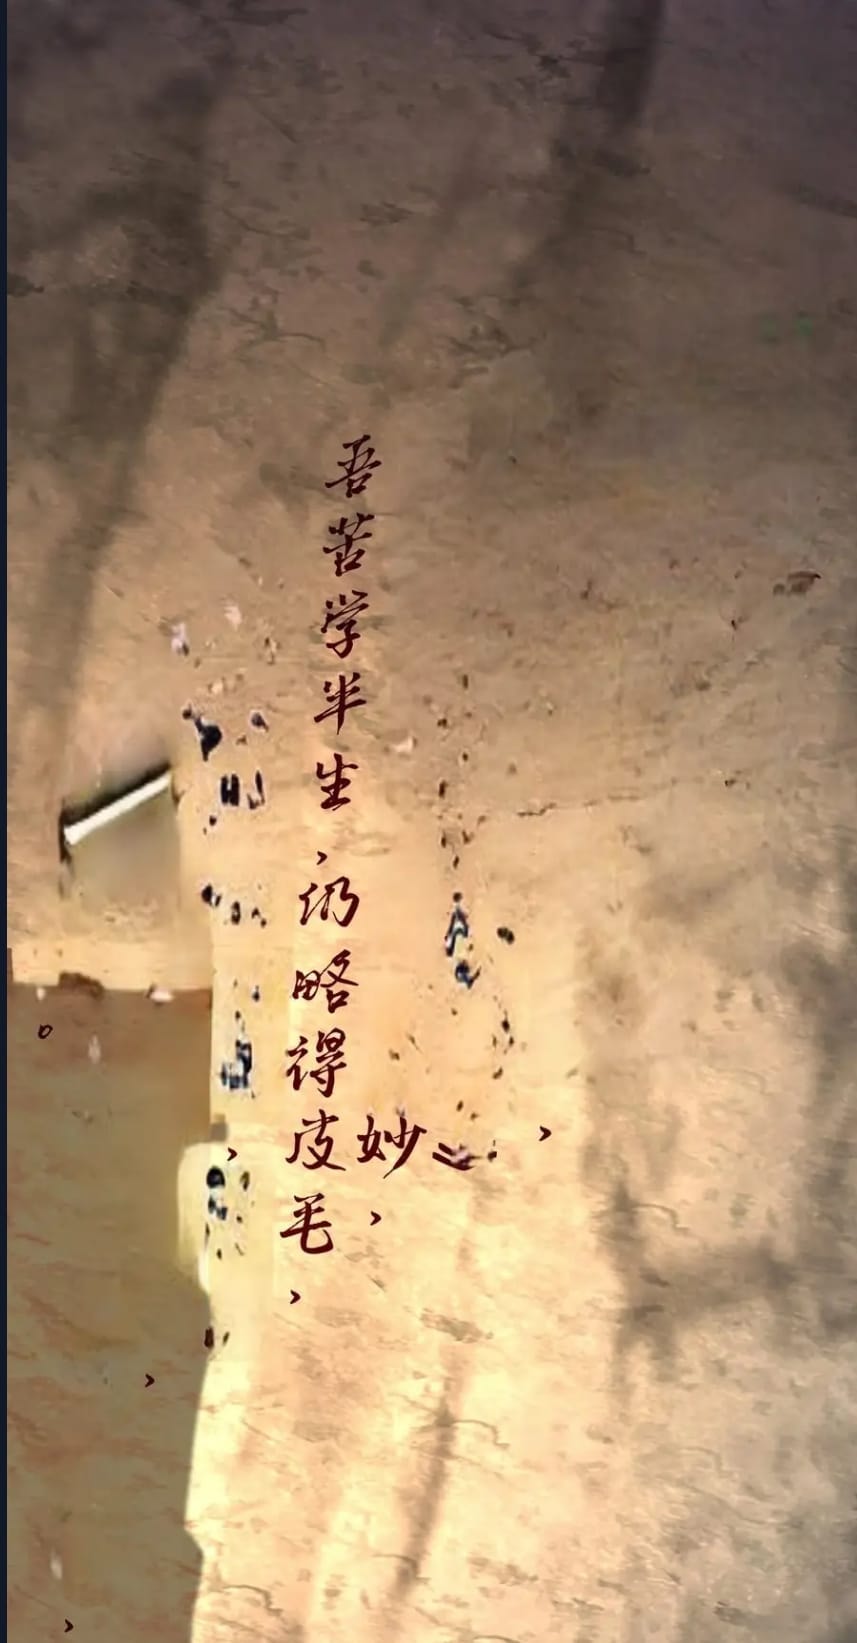 妙》,
吾苦学半生,仍略得皮毛,